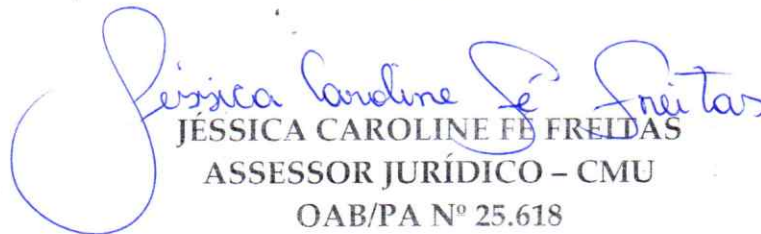 Jéssica Caroline Fé Freitas
JÉSSICA CAROLINE FÉ FREITAS
ASSESSOR JURÍDICO – CMU
OAB/PA Nº 25.618